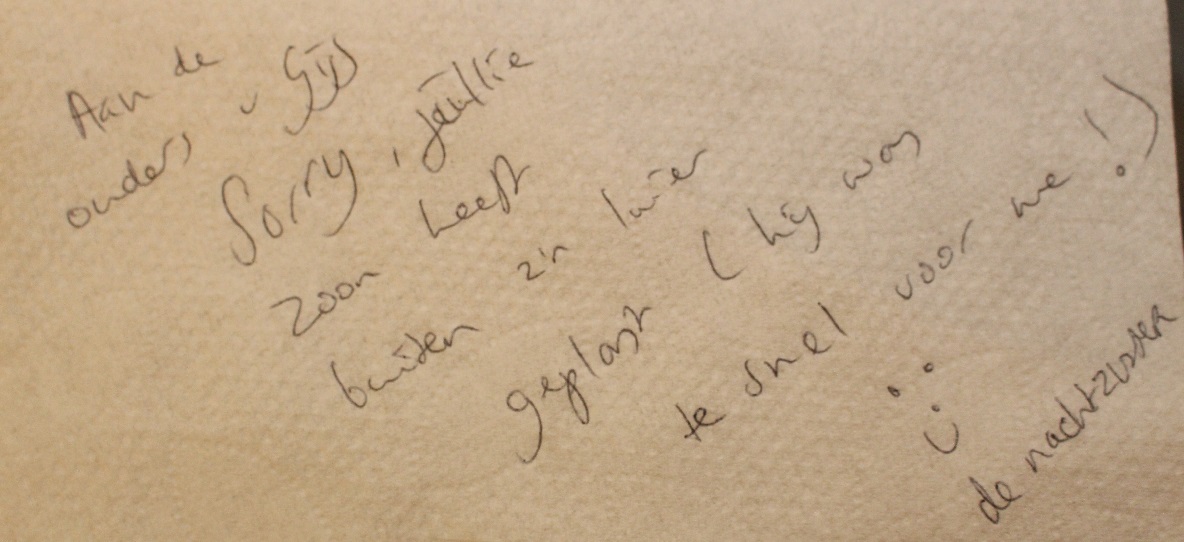 Aan de
ouders v Gijs
Sorry, jullie
zoon heeft
buiten z'n luier
geplast (hij was
te snel voor me!)
de nachtzuster